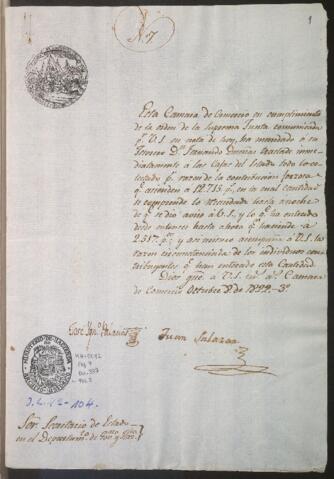 N. 7
1
Esta Camara de Comercio en cumplimiento
de la orden de la Suprema Junta comunicada
pr. V.S. en nota de hoy, ha mandado a su
Tesorero Dn. Fernando traslade inme-
diatamente a las Cajas del Estado todo lo co-
lectado pr. razon de la contribucion forzosa
qe. ascienden a 12.715 ps. en la cual cantidad
se comprende lo recaudado hasta anoche
de qe. se dió aviso á V.S., y lo qe. ha entrado
desde entonces hasta ahora qe. asciende a
2.517 ps.; y asi mismo acompaña á V.S. la
razon circunstanciada de los individuos con-
tribuyentes qe. han entrado esta Cantidad.
Dios gue. a V.S. ms. as. Camara
de Comercio Octubre 8. de 1822. 3o.
José
Juan Salazar
MINISTERIO DE HACIENDA
Sor. Secretario de Estado
en el Departamto. de